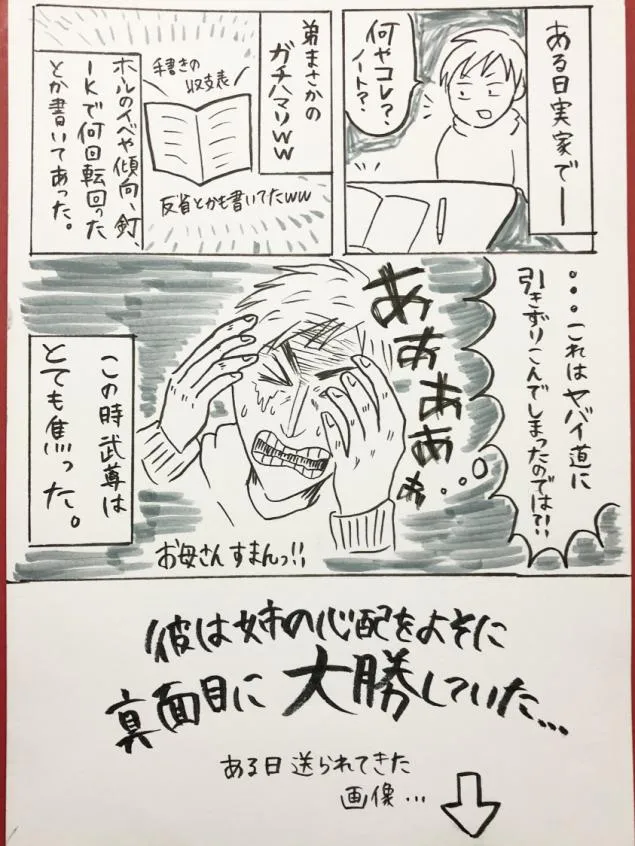 ある日実家でー
何やコレ?
ノート?
弟まさかの
ガチハマりww
手書きの
収支表
反省とかも書いてたww
ホルのイベや傾向、釘、
1Kで何回転回った
とか書いてあった。
・・・これはヤバイ道に
引きずりこんでしまったのでは?!
ああああぁぁ
お母さんすまんっ!!
この時武尊は
とても焦った。
彼は姉の心配をよそに
真面目に大勝していた...
ある日送られてきた
画像...